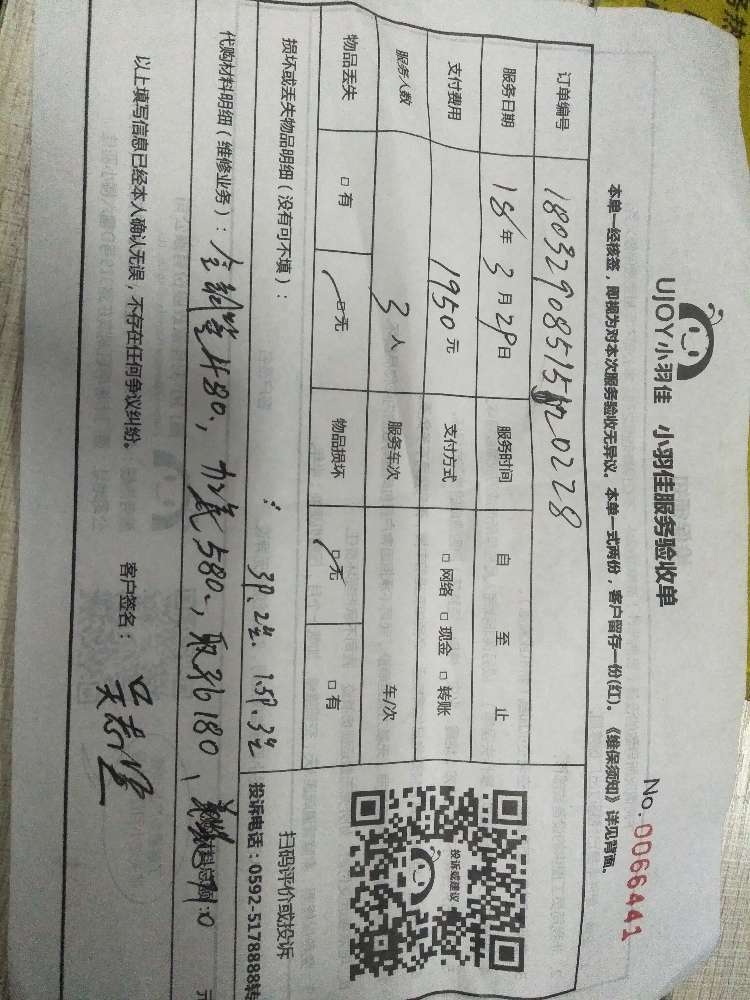 UJOY小羽佳 小羽佳服务验收单
No.0066441
本单一经核签，即视为对本次服务验收无异议。本单一式两份，客户留存一份(红)。《维保须知》详见背面。
订单编号
服务日期 18年3月29日 服务时间 自 至 止
支付费用 1950元 支付方式 □网络 □现金 □转账
服务人数 3人 服务车次 车/次
物品丢失 □有 □无 物品损坏 □无 □有
投诉或建议
扫码评价或投诉
投诉电话：0592-5178888转
损坏或丢失物品明细（没有可不填）：
3P.2台. 1.5P.3台
代购材料明细（维修业务）： 480、加氟580、180、
元
以上填写信息已经本人确认无误，不存在任何争议纠纷。 客户签名：